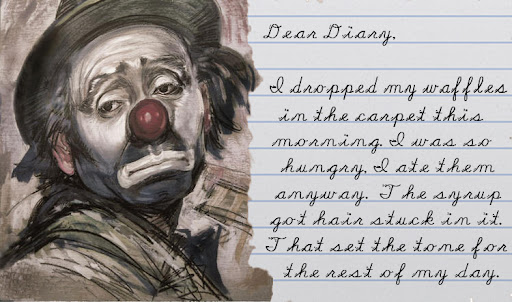 Dear Diary,
I dropped my waffles
in the carpet this
morning. I was so
hungry, I ate them
anyway. The syrup
got hair stuck in it.
That set the tone for
the rest of my day.